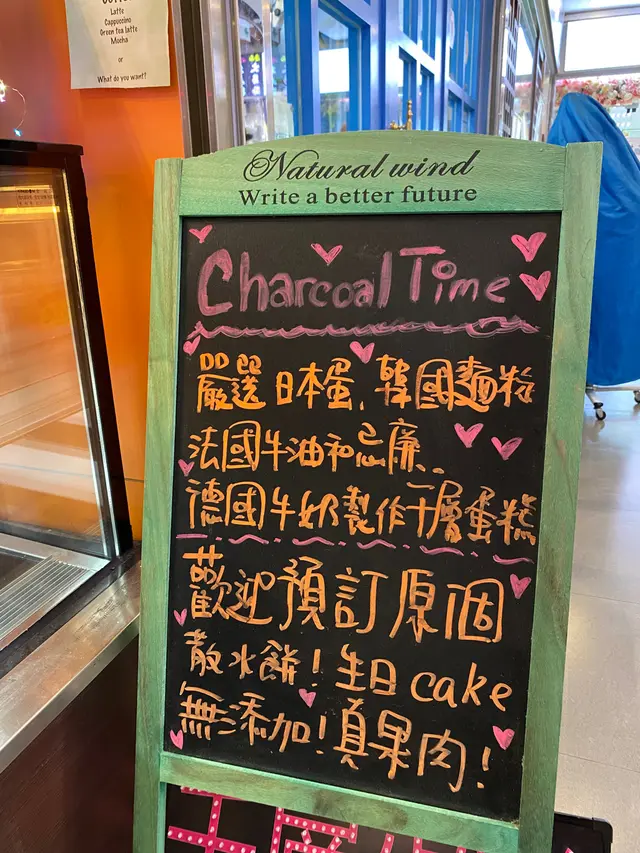 Latte
Cappuccino
Green tea latte
Mocha
or
What do you want?
Natural wind
Write a better future
Charcoal Time
嚴選日本蛋,韓國麵粉
法國牛油和忌廉..
德國牛奶製作千層蛋糕
歡迎預訂原個
散水餅!生日cake
無添加!真果肉!